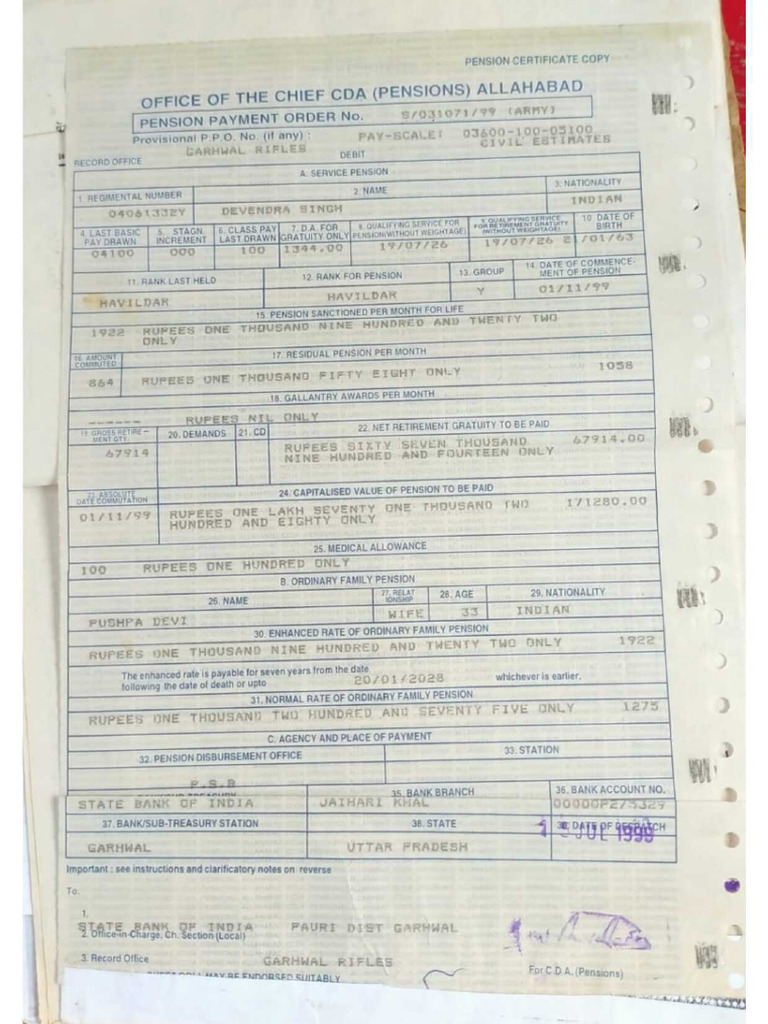 PENSION CERTIFICATE COPY
OFFICE OF THE CHIEF CDA (PENSIONS) ALLAHABAD
PENSION PAYMENT ORDER No. S/031071/99 (ARMY)
Provisional P.P.O. No. (if any) : PAY-SCALE: 03600-100-05100
GARHWAL RIFLES CIVIL ESTIMATES
RECORD OFFICE DEBIT
A. SERVICE PENSION
1. REGIMENTAL NUMBER 2. NAME 3. NATIONALITY
04061332Y DEVENDRA SINGH INDIAN
4. LAST BASIC PAY DRAWN 5. STAGN. INCREMENT 6. CLASS PAY LAST DRAWN 7. D.A. FOR GRATUITY ONLY 8. QUALIFYING SERVICE FOR PENSION(WITHOUT WEIGHTAGE) 9. QUALIFYING SERVICE FOR RETIREMENT GRATUITY (WITHOUT WEIGHTAGE) 10 DATE OF BIRTH
04100 000 100 1344.00 19/07/26 19/07/26 21/01/63
11. RANK LAST HELD 12. RANK FOR PENSION 13. GROUP 14. DATE OF COMMENCE- MENT OF PENSION
HAVILDAR HAVILDAR Y 01/11/99
15. PENSION SANCTIONED PER MONTH FOR LIFE
1922 RUPEES ONE THOUSAND NINE HUNDRED AND TWENTY TWO
ONLY
16. AMOUNT COMMUTED 17. RESIDUAL PENSION PER MONTH
864 RUPEES ONE THOUSAND FIFTY EIGHT ONLY 1058
18. GALLANTRY AWARDS PER MONTH
------ RUPEES NIL ONLY
19. GROSS RETIRE- MENT GTY. 20. DEMANDS 21. CD 22. NET RETIREMENT GRATUITY TO BE PAID
67914 RUPEES SIXTY SEVEN THOUSAND 67914.00
NINE HUNDRED AND FOURTEEN ONLY
23. ABSOLUTE DATE COMMUTATION 24. CAPITALISED VALUE OF PENSION TO BE PAID
01/11/99 RUPEES ONE LAKH SEVENTY ONE THOUSAND TWO 171280.00
HUNDRED AND EIGHTY ONLY
25. MEDICAL ALLOWANCE
100 RUPEES ONE HUNDRED ONLY
B. ORDINARY FAMILY PENSION
26. NAME 27. RELAT IONSHIP 28. AGE 29. NATIONALITY
PUSHPA DEVI WIFE 33 INDIAN
30. ENHANCED RATE OF ORDINARY FAMILY PENSION
RUPEES ONE THOUSAND NINE HUNDRED AND TWENTY TWO ONLY 1922
The enhanced rate is payable for seven years from the date
following the date of death or upto 20/01/2028 whichever is earlier.
31. NORMAL RATE OF ORDINARY FAMILY PENSION
RUPEES ONE THOUSAND TWO HUNDRED AND SEVENTY FIVE ONLY 1275
C. AGENCY AND PLACE OF PAYMENT
32. PENSION DISBURSEMENT OFFICE 33. STATION
P.S.B
35. BANK BRANCH 36. BANK ACCOUNT NO.
STATE BANK OF INDIA JAIHARI KHAL 00000P2/5329
37. BANK/SUB-TREASURY STATION 38. STATE 39. DATE OF DESPATCH
JUL 1999
GARHWAL UTTAR PRADESH
Important : see instructions and clarificatory notes on reverse
To.
1.
STATE BANK OF INDIA PAURI DIST GARHWAL
2. Office-in-Charge, Ch. Section (Local)
3. Record Office GARHWAL RIFLES
For C.D.A. (Pensions)
MAY BE ENDORSED SUITABLY